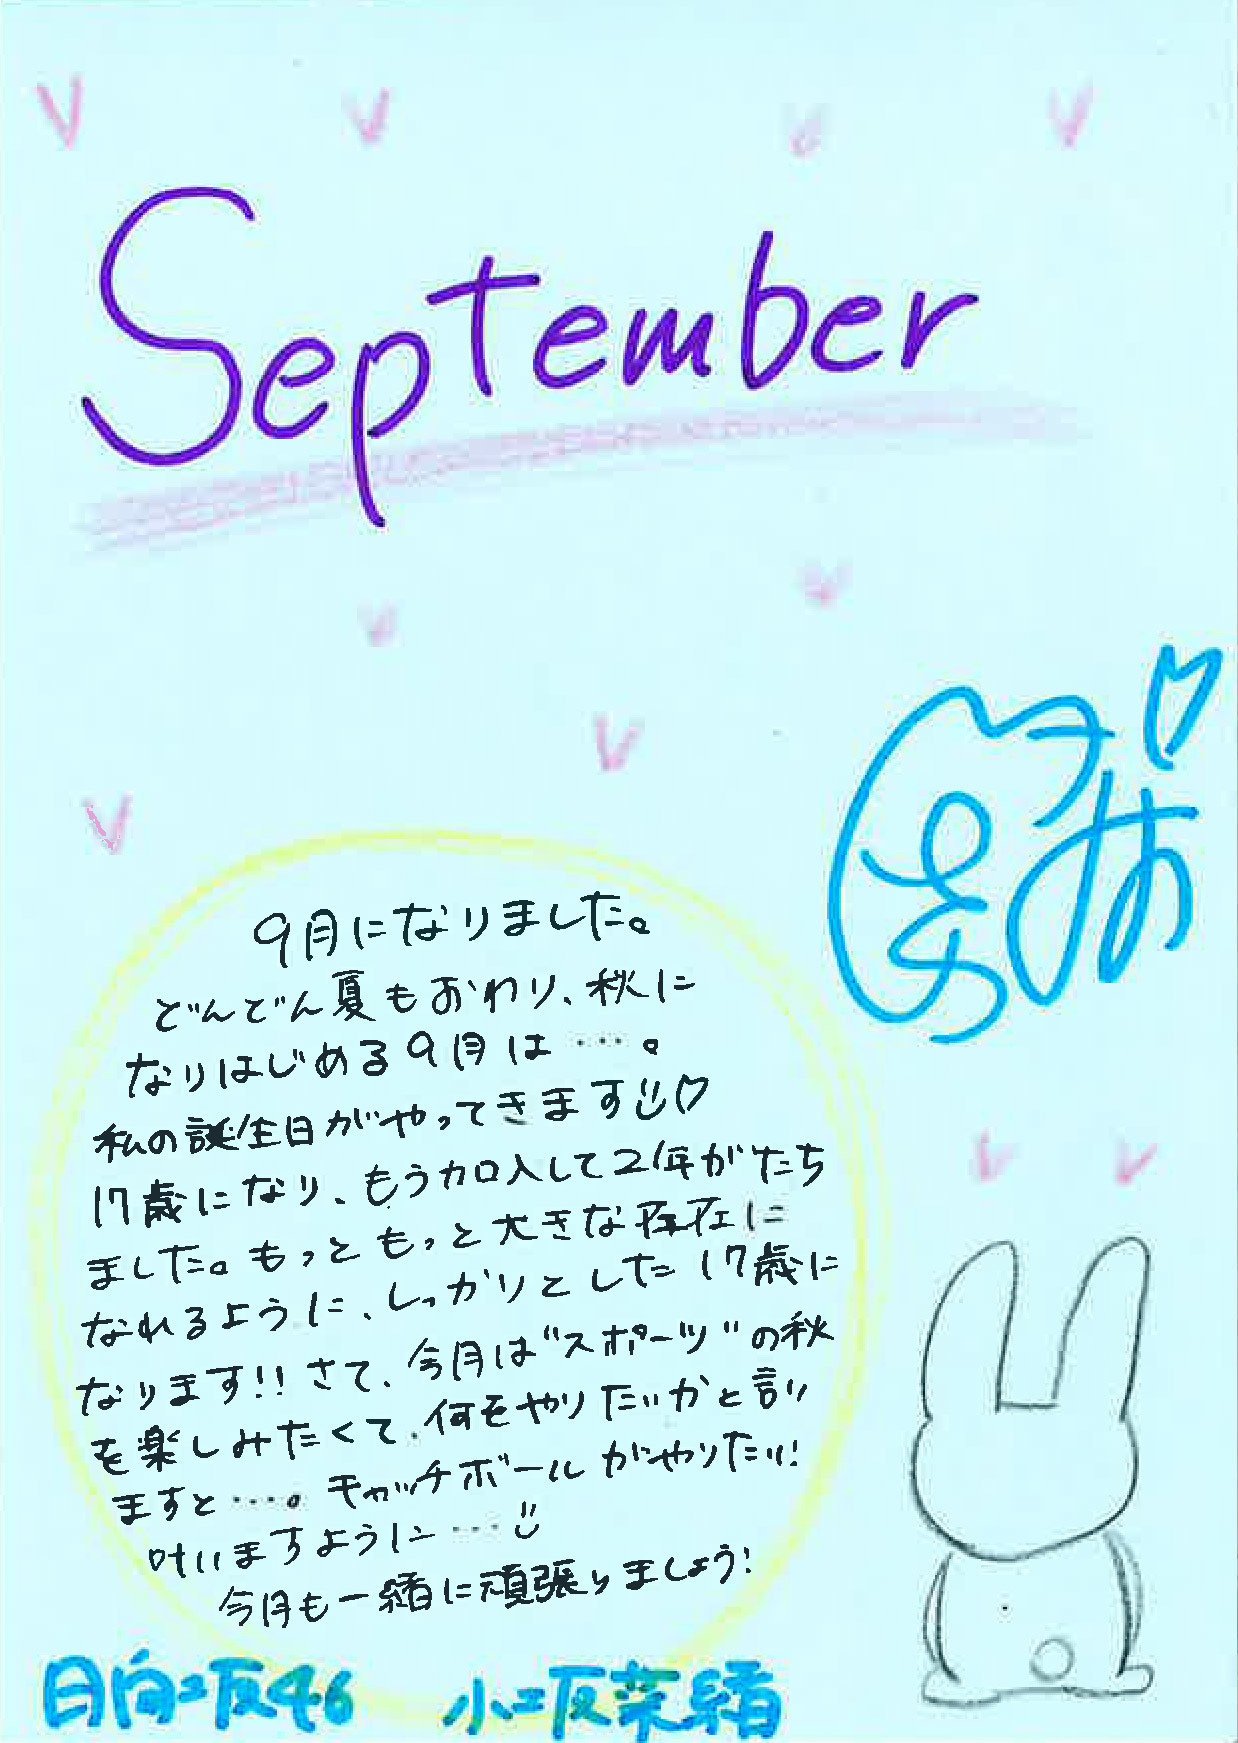 September
9月になりました。
どんどん夏もおわり、秋に
なりはじめる9月は…。
私の誕生日がやってきます
17歳になり、もう加入して2年がたち
ました。もっともっと大きな存在に
なれるように、しっかりとした17歳に
なります!!さて、今月は"スポーツ"の秋
を楽しみたくて、何をやりたいかと言い
ますと…。キャッチボールがやりたい!
叶いますように…
今月も一緒に頑張りましょう!
日向坂46 小坂菜緒